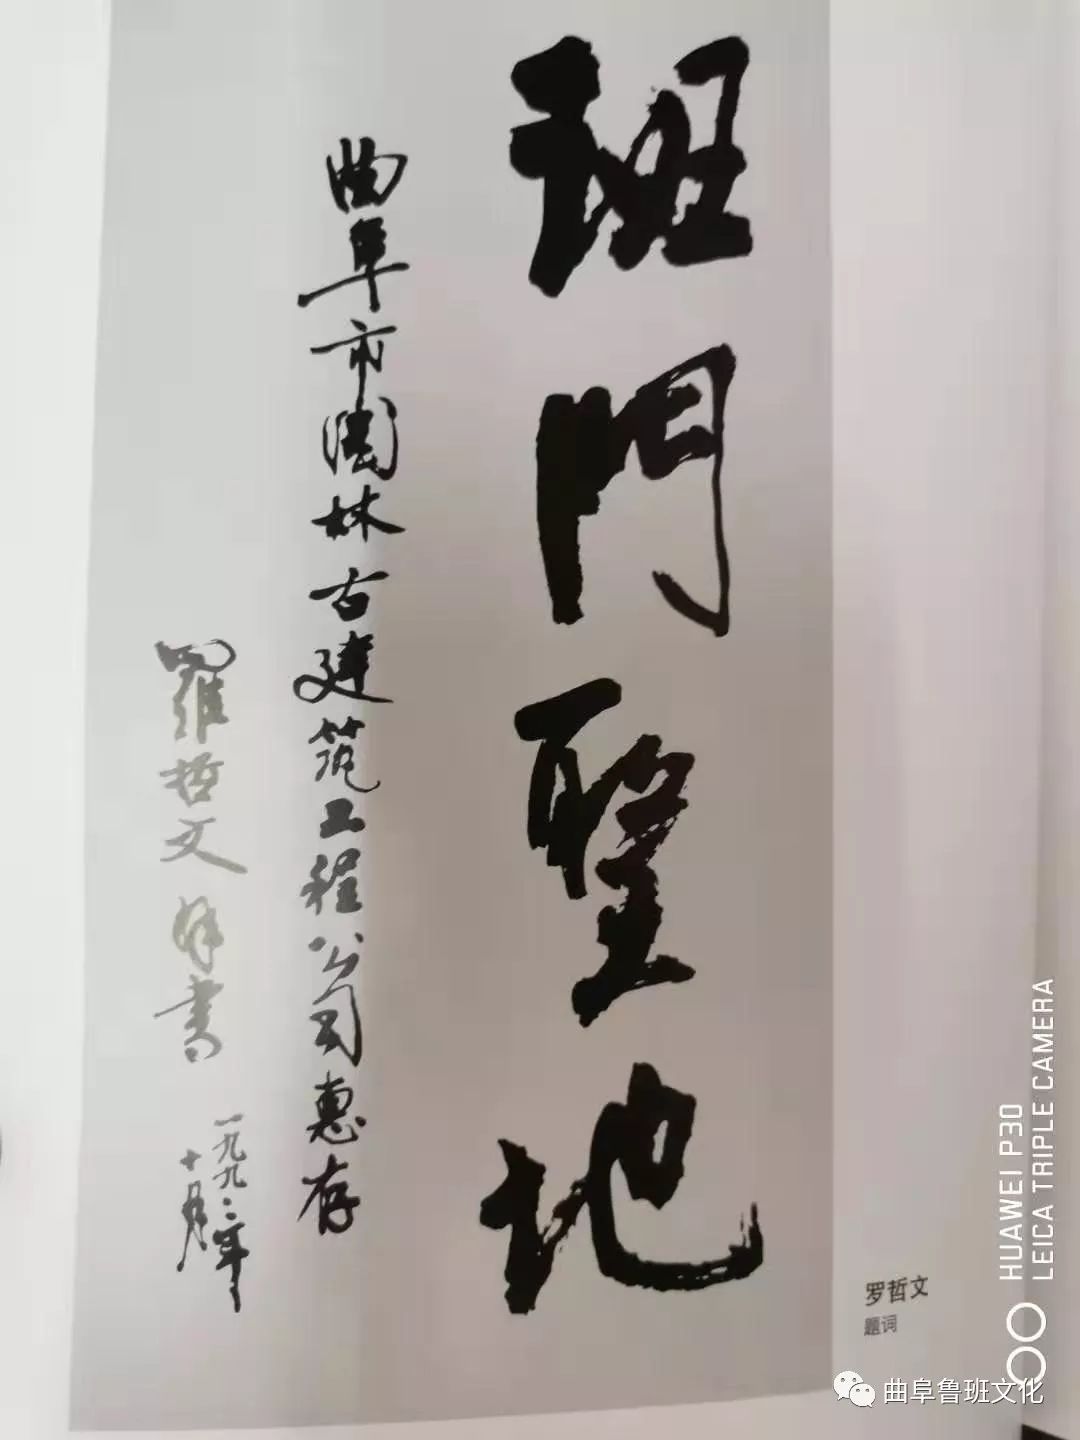 班門聖地
曲阜市園林古建筑工程公司惠存
羅哲文拜書
一九九二年
十月
罗哲文
题词
HUAWEI P30
LEICA TRIPLE CAMERA
曲阜鲁班文化